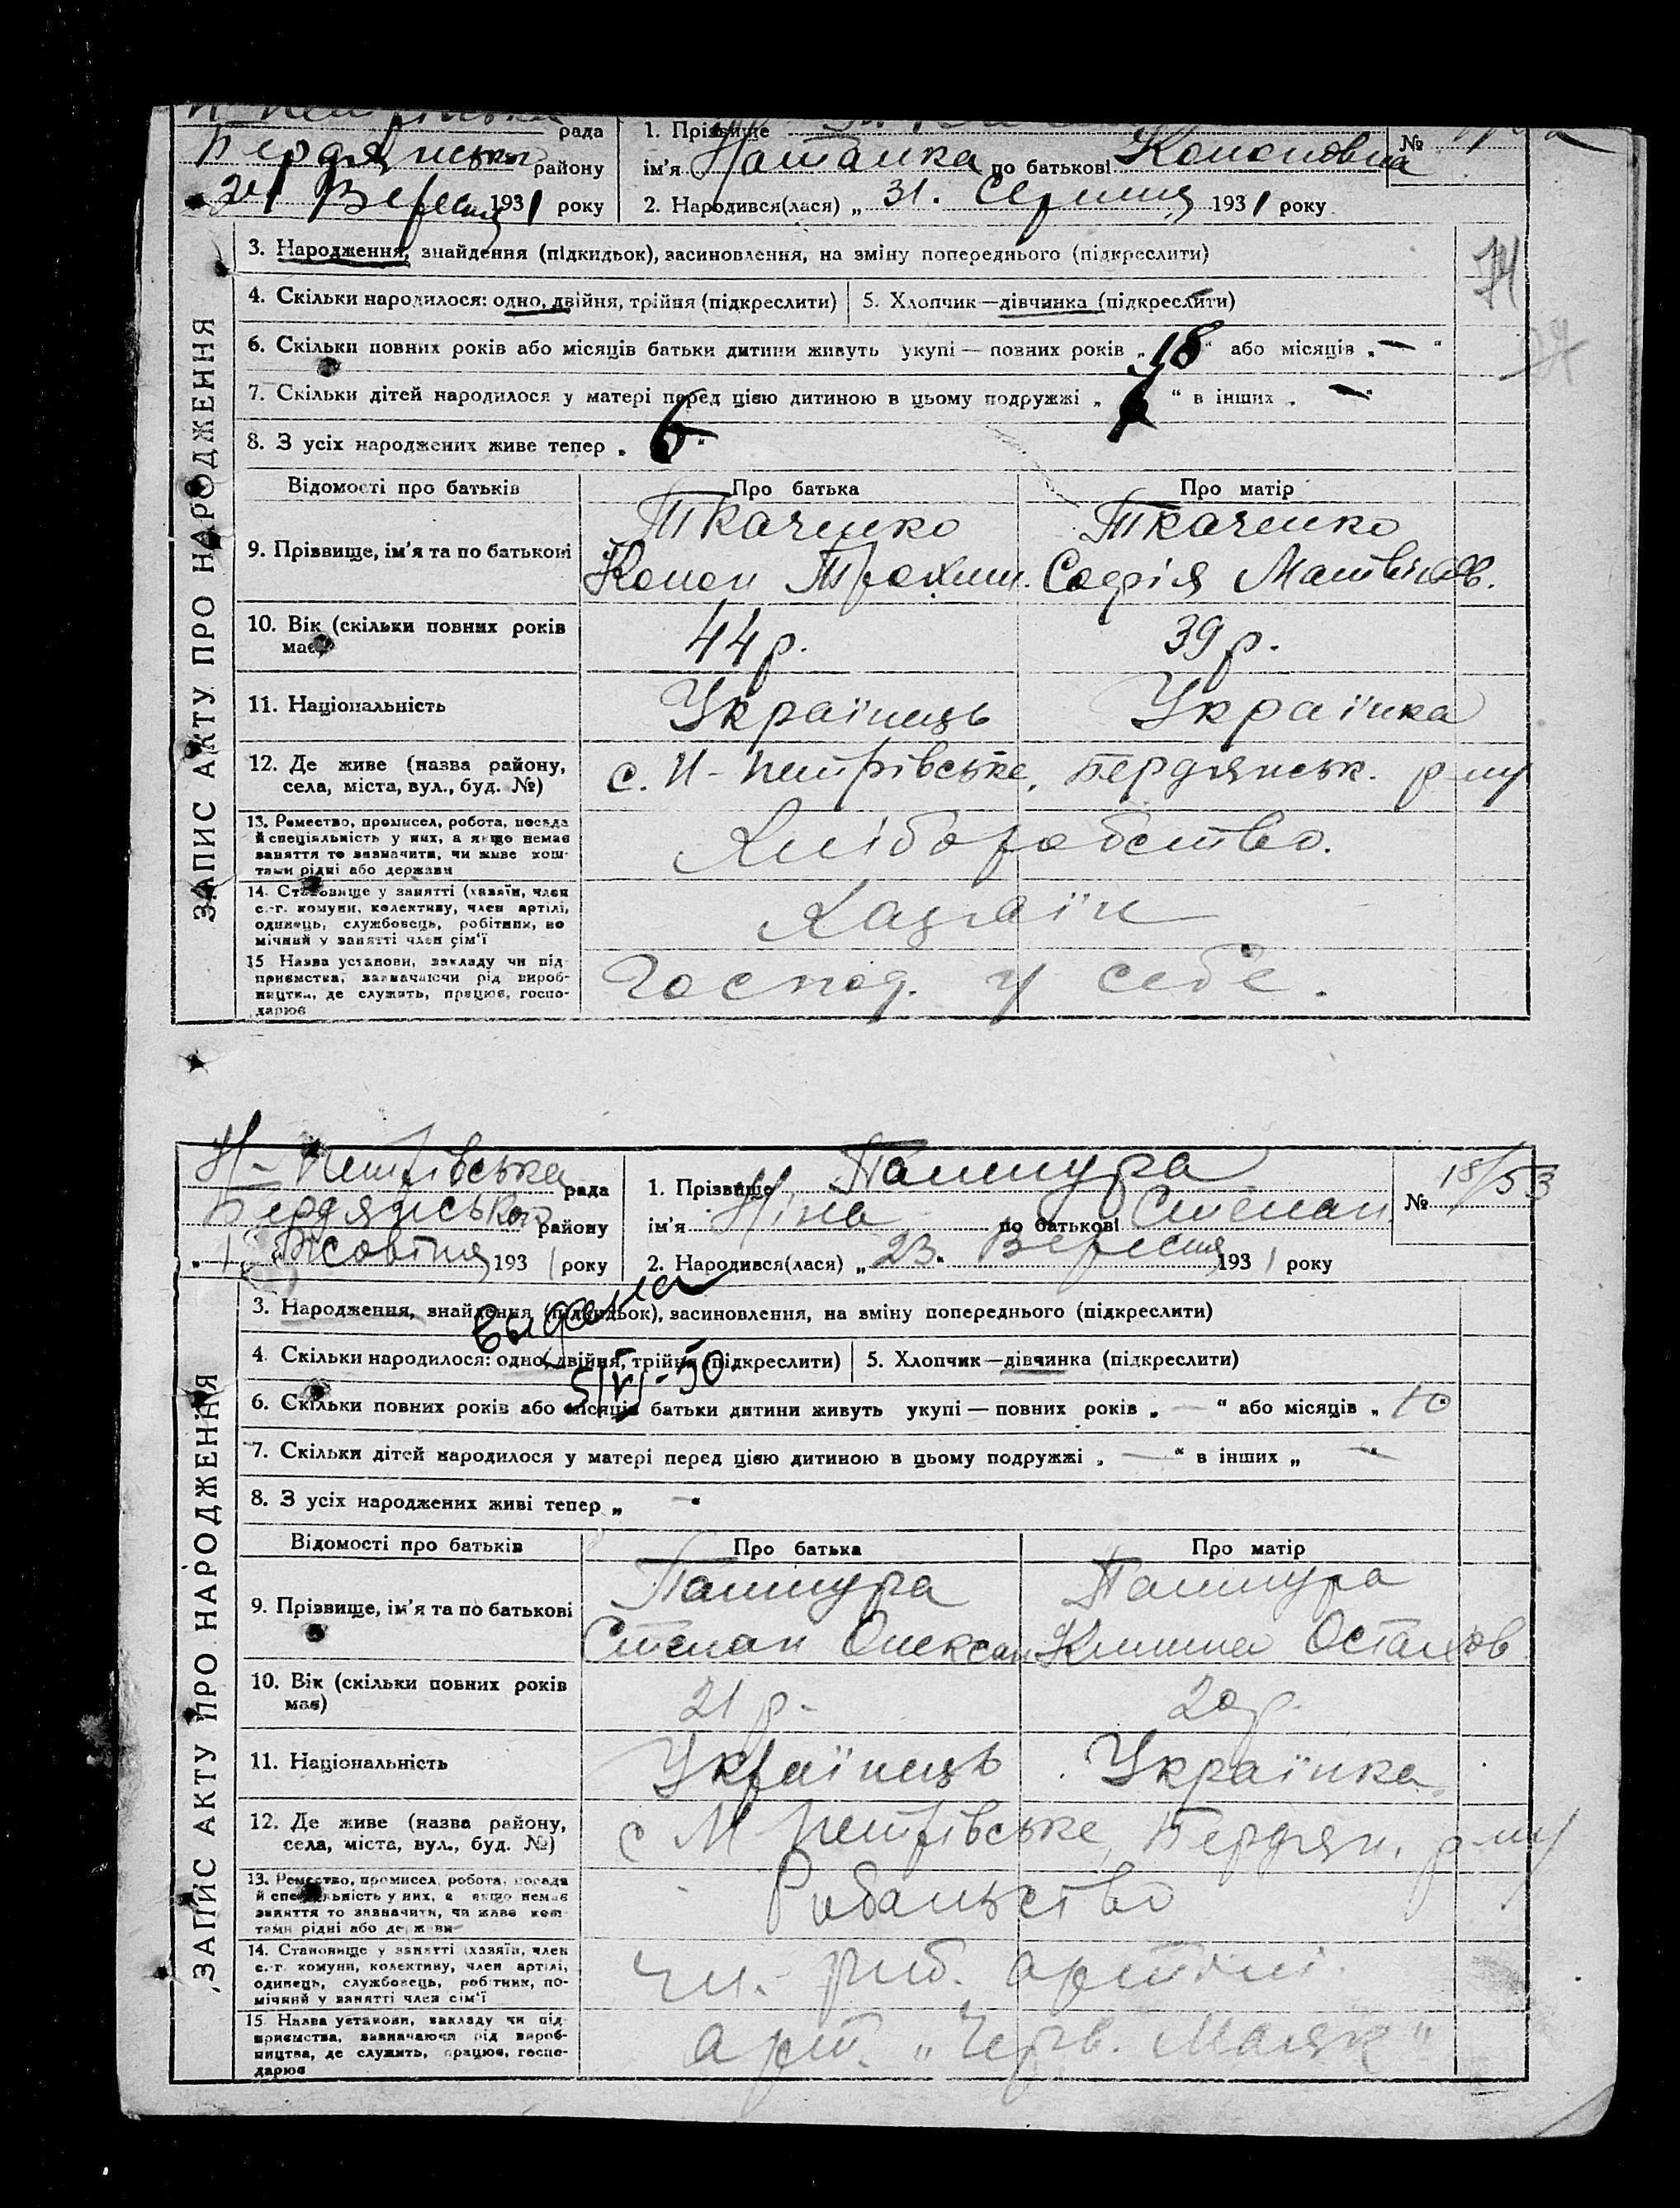 Н-Петрівська рада
Бердянського району
„21 Вересня 1931 року
1. Прізвище
№
ім'я Наталка по батькові Кононовна
2. Народився(лася) „ 31. Серпня 1931 року
ЗАПИС АКТУ ПРО НАРОДЖЕННЯ
3. Народження, знайдення (підкидьок), засиновлення, на зміну попереднього (підкреслити)
74
4. Скільки народилося: одно, двійня, трійня (підкреслити) 5. Хлопчик—дівчинка (підкреслити)
6. Скільки повних років або місяців батьки дитини живуть укупі — повних років „18“ або місяців „—“
7. Скільки дітей народилося у матері перед цією дитиною в цьому подружжі „ “ в інших „—“
8. З усіх народжених живе тепер „6“
Відомості про батьків Про батька Про матір
9. Прізвище, ім'я та по батькові
Ткаченко Ткаченко
Конон Трохим. Софія Матвіїв.
10. Вік (скільки повних років має) 44 р. 39 р.
11. Національність Українець Українка
12. Де живе (назва району, села, міста, вул., буд. №) с. Н-Петрівське, Бердянськ. р-ну
13. Ремество, промисел, робота, посада
й спеціяльність у них, а якщо немає
заняття то зазначити, чи живе кош-
тами рідні або держави
Хліборобство.
14. Становище у занятті (хазяїн, член
с.-г. комуни, колективу, член артілі,
одинець, службовець, робітник, по-
мічний у занятті член сім'ї
Хазяїн
15 Назва установи, закладу чи під-
приємства, зазначаючи рід вироб-
ництва, де служить, працює, госпо-
дарює
Господ. у себе.
Н-Петрівська рада
Бердянського району
„1“ Жовтня 1931 року
1. Прізвище Паштура
№ 18/53
ім'я Ніна по батькові Степан.
2. Народився(лася) „23“ Вересня 1931 року
ЗАПИС АКТУ ПРО НАРОДЖЕННЯ
3. Народження, знайдення (підкидьок), засиновлення, на зміну попереднього (підкреслити)
4. Скільки народилося: одно, двійня, трійня (підкреслити) 5. Хлопчик—дівчинка (підкреслити)
5/VI-50
6. Скільки повних років або місяців батьки дитини живуть укупі — повних років „—“ або місяців „10
7. Скільки дітей народилося у матері перед цією дитиною в цьому подружжі „—“ в інших „—“
8. З усіх народжених живі тепер „—“
Відомості про батьків Про батька Про матір
9. Прізвище, ім'я та по батькові
Паштура Паштура
Степан Олексан Остапов
10. Вік (скільки повних років має) 21 р. 20 р.
11. Національність Українець Українка
12. Де живе (назва району, села, міста, вул., буд. №) с Н Петрівське, Бердян. р-ну
13. Ремество, промисел, робота, посада
й спеціяльність у них, а якщо немає
заняття то зазначити, чи живе кош-
тами рідні або держави
Рибальство
14. Становище у занятті (хазяїн, член
с.-г. комуни, колективу, член артілі,
одинець, службовець, робітник, по-
мічний у занятті член сім'ї
чл. риб. артілі.
15. Назва установи, закладу чи під-
приємства, зазначаючи рід вироб-
ництва, де служить, працює, госпо-
дарює
арт. „Черв. Маяк"